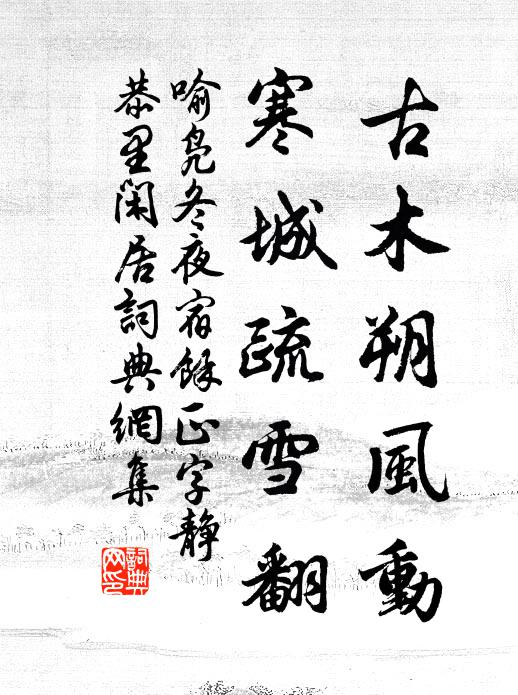 古木朔風動
寒城疏雪翻
喻凫冬夜宿餘正字静
恭里閑居詞典網集
詞典网印